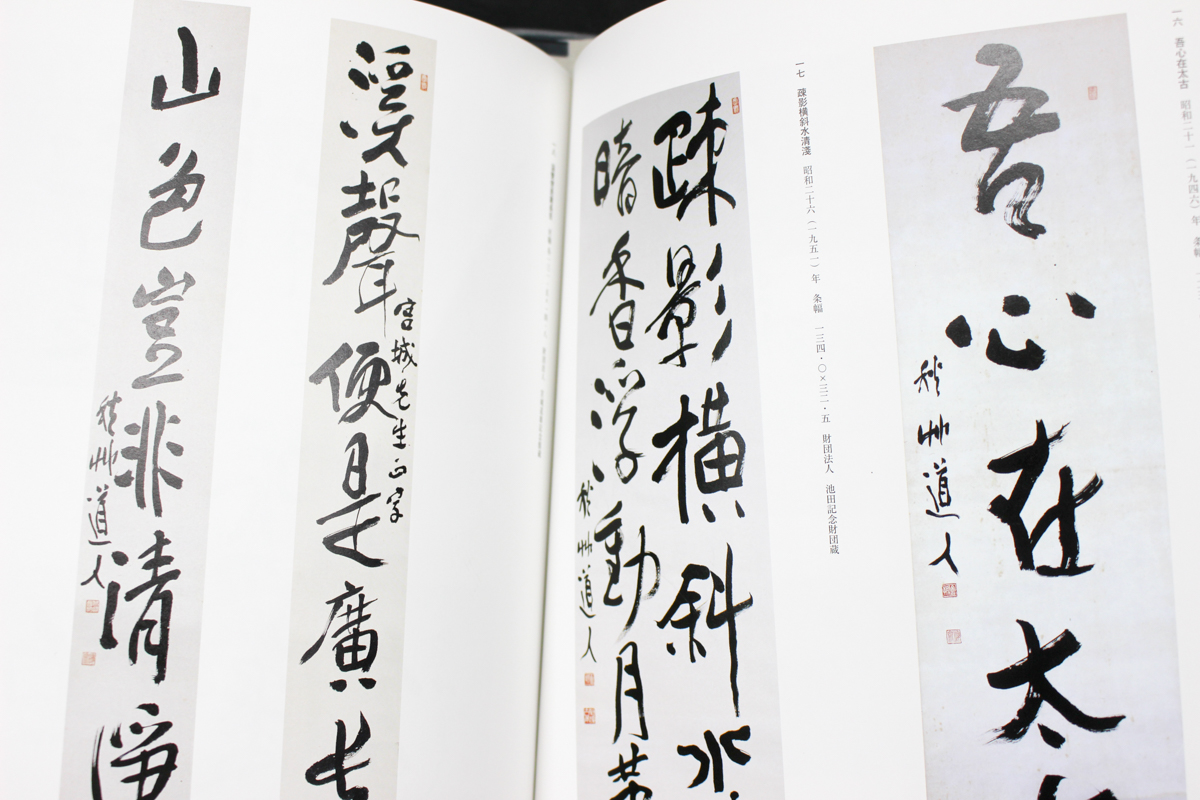 一六 吾心在太古 昭和二十一(一九四六)年 条幅
吾心在太
秋艸道人
一七 疎影横斜水清浅 昭和二十六(一九五一)年 条幅 一三四・〇×三二・五 財団法人 池田記念財団蔵
疎影橫斜水
暗香浮動月黄
秋艸道人
渓聲便是廣長
宮城先生正字
山色豈非清浄
秋艸道人